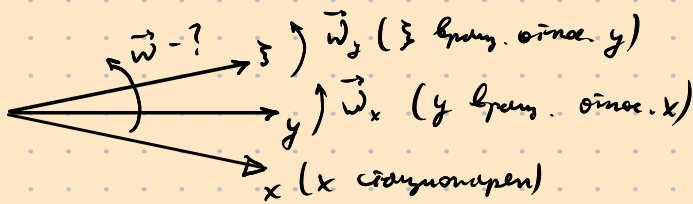 w⃗ - ?
ξ w⃗_y (ξ вращ. относ. y)
y w⃗_x (y вращ. относ. x)
x (x стационарен)